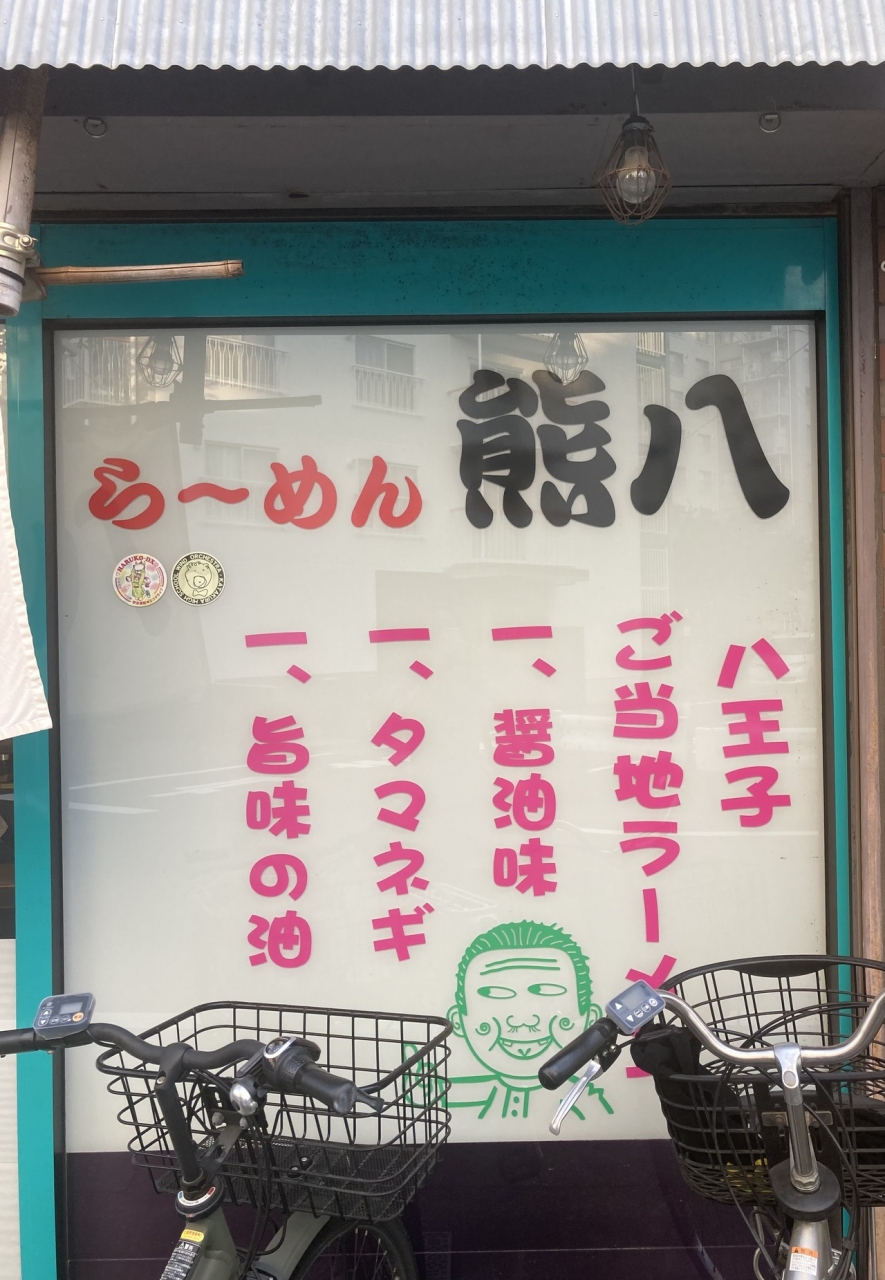 ら〜めん 熊八
HARUKO-DX
KATAKURA HIGH SCHOOL WIND ORCHESTRA
八王子
ご当地ラーメ
一、醤油味
一、タマネギ
一、旨味の油